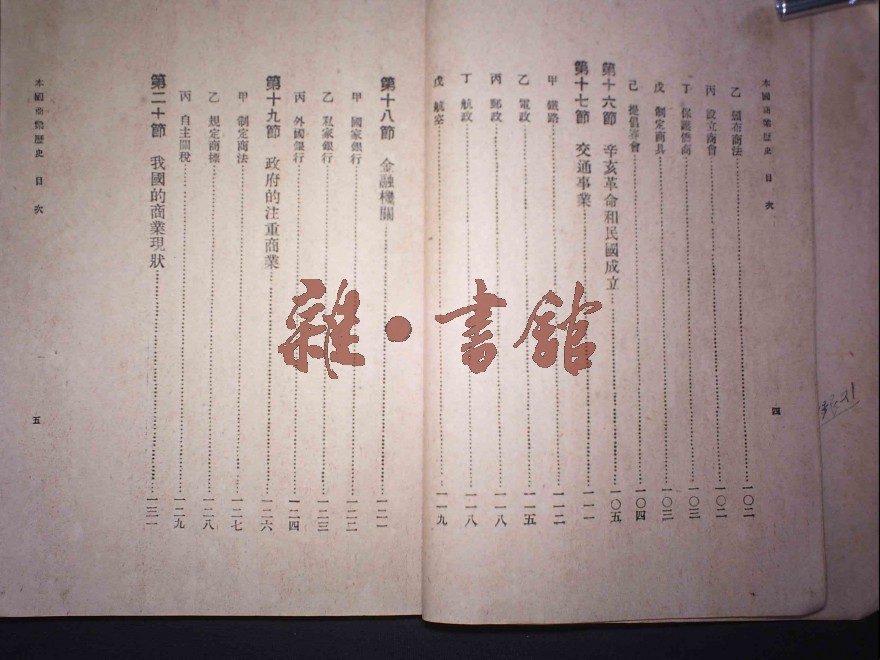 本國商業歷史 目次
乙 頒布商法……一〇二
丙 設立商會……一〇二
丁 保護僑商……一〇三
戊 制定商具……一〇三
己 提倡賽會……一〇四
第十六節 辛亥革命和民國成立……一〇五
第十七節 交通事業……一一一
甲 鐵路……一一二
乙 電政……一一五
丙 郵政……一一八
丁 航政……一一八
戊 航空……一一九
四
第十八節 金融機關……一二一
甲 國家銀行……一二二
乙 私家銀行……一二三
丙 外國銀行……一二四
第十九節 政府的注重商業……一二六
甲 制定商法……一二七
乙 規定商標……一二八
丙 自主關稅……一二九
第二十節 我國的商業現狀……一三一
本國商業歷史 目次
五
雜·書館